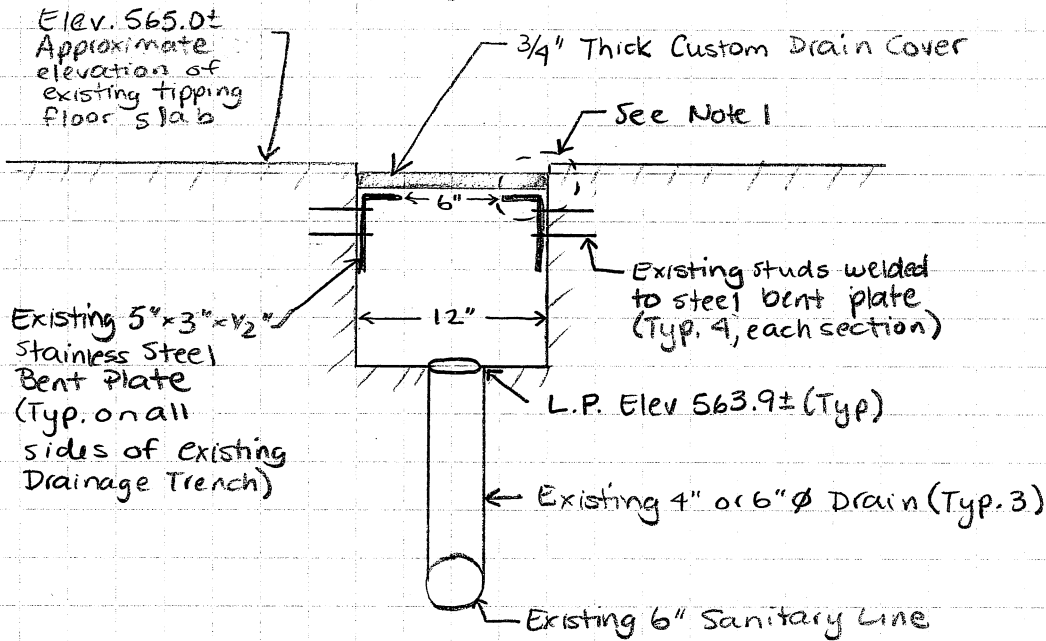 Elev. 565.0±
Approximate
elevation of
existing tipping
floor slab
3/4" Thick Custom Drain Cover
See Note 1
6"
Existing studs welded
to steel bent plate
(Typ. 4, each section)
Existing 5"x3"x1/2"
Stainless Steel
Bent Plate
(Typ. on all
sides of existing
Drainage Trench)
12"
L.P. Elev 563.9± (Typ)
Existing 4" or 6" Ø Drain (Typ. 3)
Existing 6" Sanitary Line